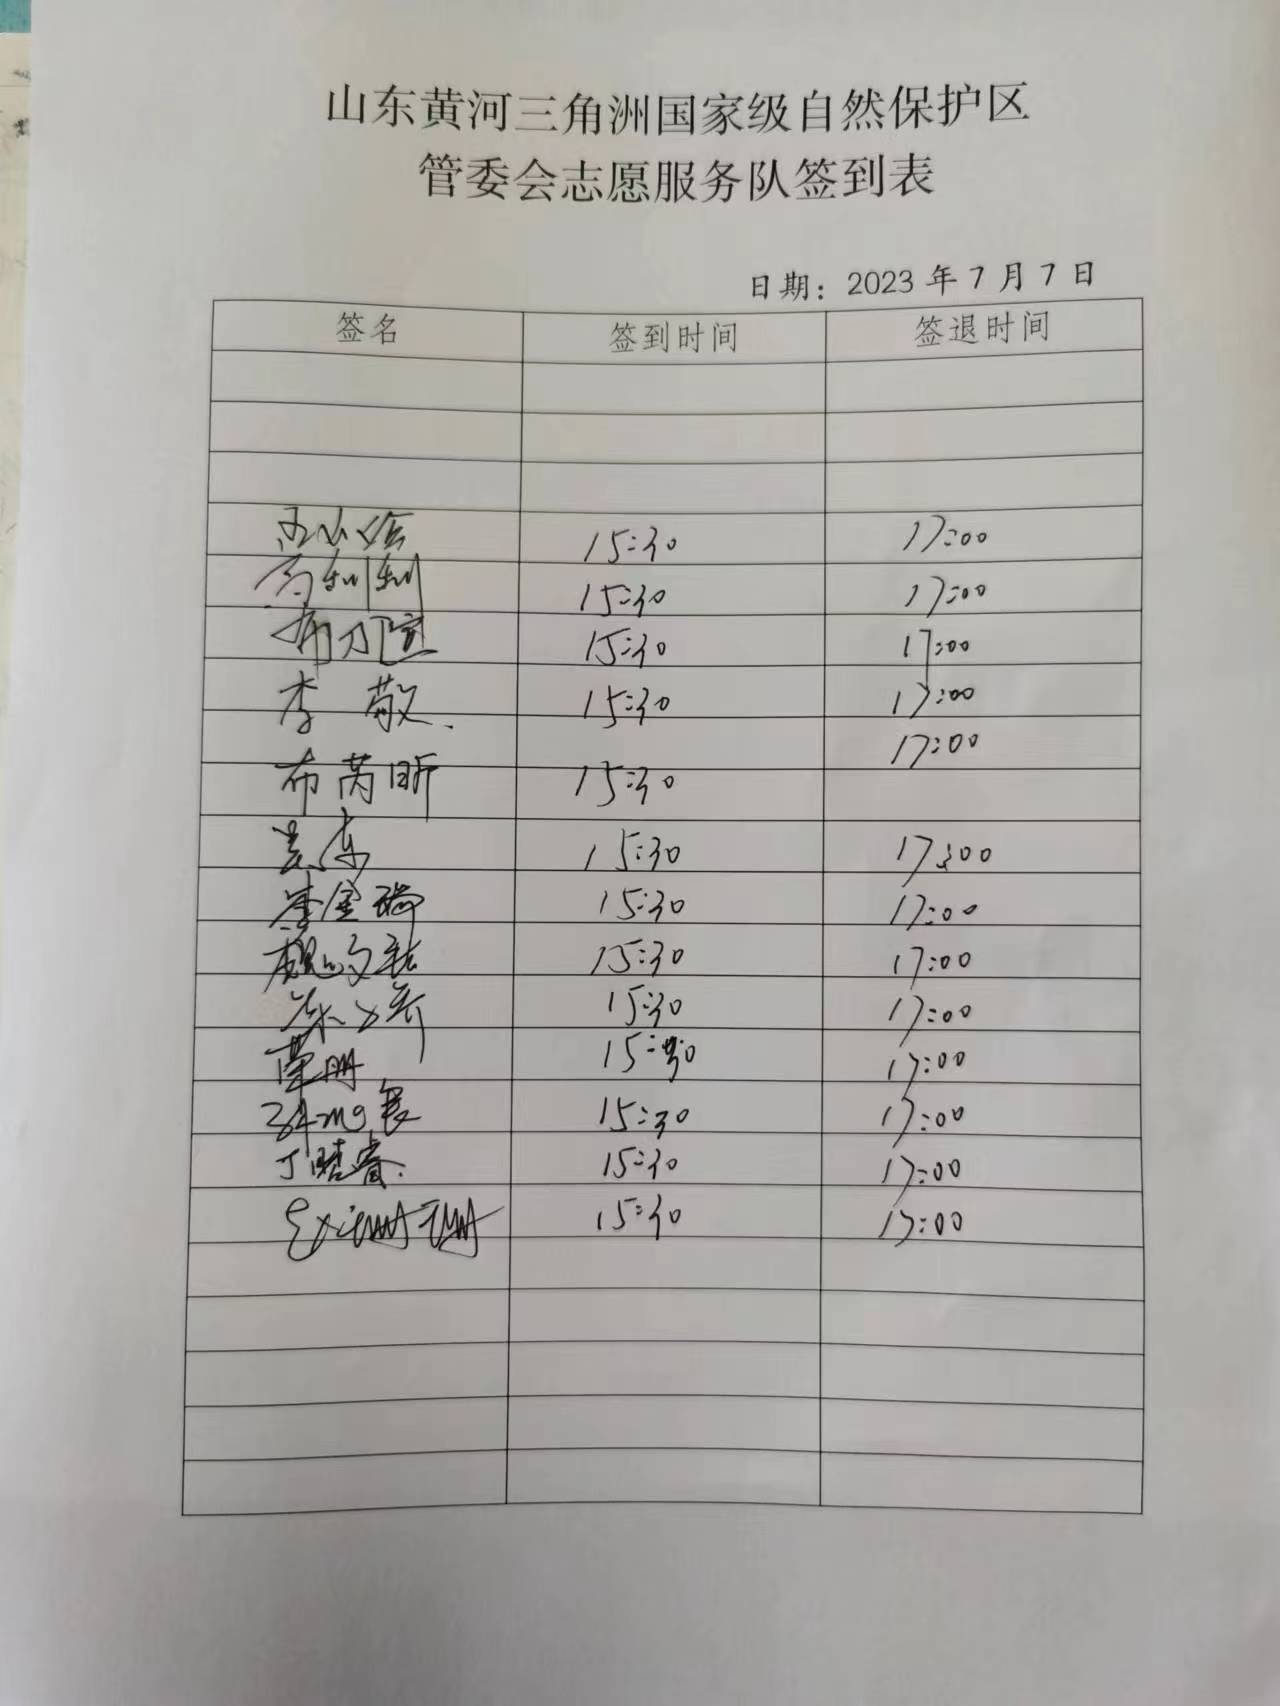 山东黄河三角洲国家级自然保护区
管委会志愿服务队签到表
日期：2023年7月7日
签名 签到时间 签退时间
15:30 17:00
15:30 17:00
15:30 17:00
李敬 15:30 17:00
17:00
布芮昕 15:30
15:30 17:00
李金瑞 15:30 17:00
15:30 17:00
15:30 17:00
15:30 17:00
15:30 17:00
丁皓睿 15:30 17:00
15:30 17:00